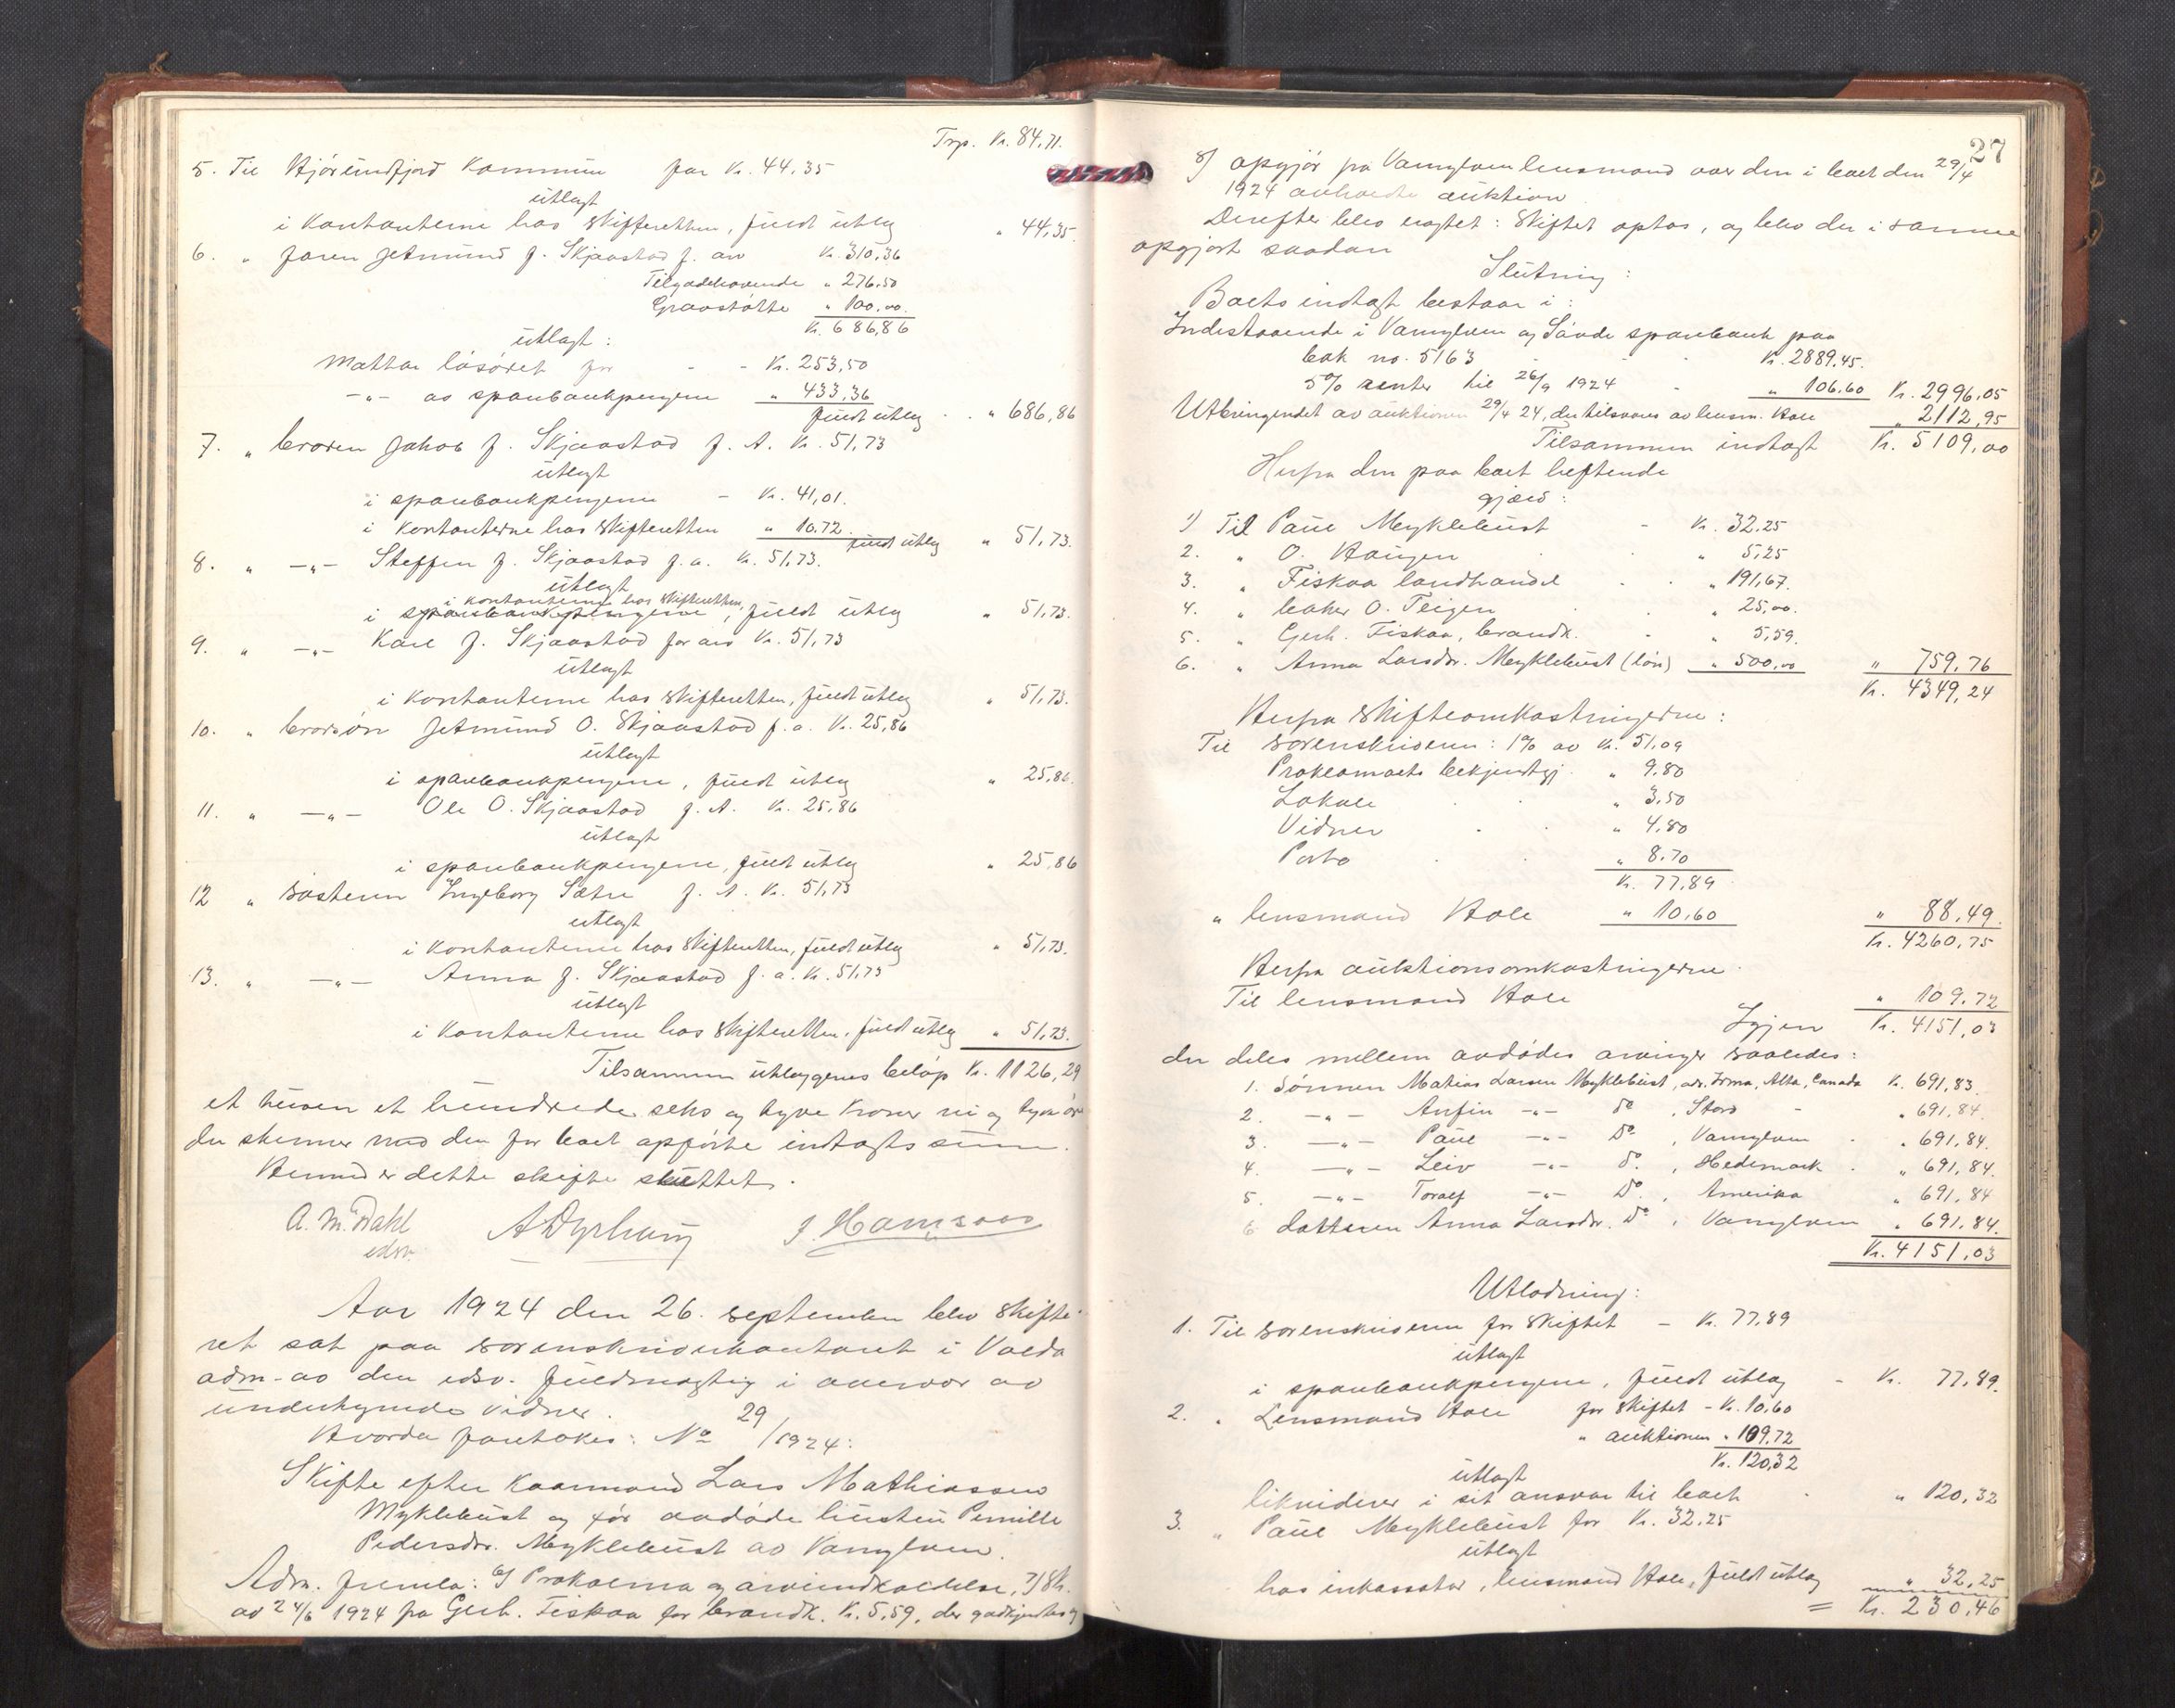 Trp. Kr. 84,71.
5. Til Hjörundfjord Kommune for Kr. 44,35
utlagt
i kontanterne hos skifteretten, fuldt utlæg " 44,35.
6. " faren Jetmund J. Skjaastad f. arv Kr. 310,36
Tilgodehavende " 276,50
Gravstötte " 100,00.
Kr. 686,86
utlagt:
Mottar lösöret for - - Kr. 253,50
-"- av sparebankpengene " 433,36
fuldt utlæg . . " 686,86
7. " broren Jakob J. Skjaastad f. A. Kr. 51,73
utlagt
i sparebankpengene - Kr. 41,01.
i kontanterne hos skifteretten " 10,72
fuldt utlæg " 51,73.
8. " -"- Steffen J. Skjaastad f. a. Kr. 51,73.
utlagt
i kontanterne hos skifteretten,
i sparebankpengene, fuldt utlæg " 51,73.
9. " -"- Karl J. Skjaastad for arv Kr. 51,73
utlagt
i kontanterne hos skifteretten, fuldt utlæg " 51,73.
10. " brorsön Jetmund O. Skjaastad f. a. Kr. 25,86
utlagt
i sparebankpengene, fuldt utlæg " 25,86.
11. " -"- Ole O. Skjaastad f. A. Kr. 25,86
utlagt
i sparebankpengene, fuldt utlæg " 25,86
12 " sösteren Ingeborg Sætre f. A. Kr. 51,73
utlagt
i kontanterne hos skifteretten, fuldt utlæg " 51,73.
13. " -"- Anna J. Skjaastad f. a. Kr. 51,73
utlagt
i kontanterne hos skifteretten, fuldt utlæg " 51,73.
Tilsammen utlæggenes belöp Kr. 1126,29
et tusen et hundrede seks og tyve kroner ni og tyve öre
der stemmer med den for boet opförte indtægts sum.
Hermed er dette skifte sluttet.
A. M. Dahl
edsv.
J. Hamsaas
Aar 1924 den 26. september blev skifte-
ret sat paa sorenskriverkontoret i Volda
adm. av den edsv. fuldmægtig i overvær av
undertegnede vidner.
Hvorda foretokes: No 29/1924:
Skifte efter kaarmand Lars Mathiassen
Myklebust og för avdöde hustru Pernille
Pedersdr. Myklebust av Vanylven.
Adm. fremla: 6) Proklama og arveindkaldelse, 7) Skr.
av 24/6 1924 fra Gerh. Fiskaa for brandk. Kr. 5,59, der godkjendtes og
27
8) opgjör fra Vanylven lensmand over den i boet den 29/4
1924 avholdte auktion
Derefter blev eragtet: Skiftet optas, og blev der i samme
opgjort saadan
Slutning:
Boets indtægt bestaar i:
Indestaaende i Vanylven og Sövde sparebank paa
bok no. 5163 - - - Kr. 2889,45.
5% renter til 26/9 1924 - " 106,60 Kr. 2996,05
Utbringendet av auktionen 29/4 24, der tilsvares av lensm. Hole " 2112,95
Tilsammen indtægt Kr. 5109,00
Herfra den paa boet heftende
gjæld:
1) Til Paul Myklebust - Kr. 32,25
2. " O. Haugen . " 5,25
3. " Fiskaa landhandel . . " 191,67.
4. " baker O. Teigen . " 25,00.
5. " Gerh. Fiskaa, brandk. - " 5,59.
6. " Anna Larsdr. Myklebust (lön) " 500,00 " 759,76
Kr. 4349,24
Herfra skifteomkostningerne:
Til sorenskriveren: 1% av Kr. 51,09
Proklamaets bekjendtgj. " 9,80
Lokale . . " 3,50
Vidner . . " 4,80
Porto . . " 8,70
Kr. 77,89
" lensmand Hole " 10,60 " 88,49.
Kr. 4260,75
Herfra auktionsomkostningerne.
Til lensmand Hole " 109,72
Igjen Kr. 4151,03
der deles mellem avdödes arvinger saaledes:
1. Sönnen Matias Larsen Myklebust, adr. Irma, Alta, Canada Kr. 691,83.
2. -"- Anfin -"- do , Stord - " 691,84.
3. -"- Paul -"- Do , Vanylven . " 691,84.
4. -"- Leiv -"- do , Hedemark . " 691,84.
5. -"- Toralf -"- Do , Amerika " 691,84
6 datteren Anna Larsdr. Do , Vanylven " 691,84.
Kr. 4151,03
Utlodning:
1. Til sorenskriveren for skiftet - Kr. 77,89
utlagt
i sparebankpengene, fuldt utlæg - Kr. 77,89.
2. " Lensmand Hole for skiftet - Kr. 10,60
" auktionen " 109,72
Kr. 120,32
utlagt
likviderer i sit ansvar til boet . " 120,32
3. " Paul Myklebust for Kr. 32,25
utlagt
hos inkassator, lensmand Hole, fuldt utlæg " 32,25
= Kr. 230,46